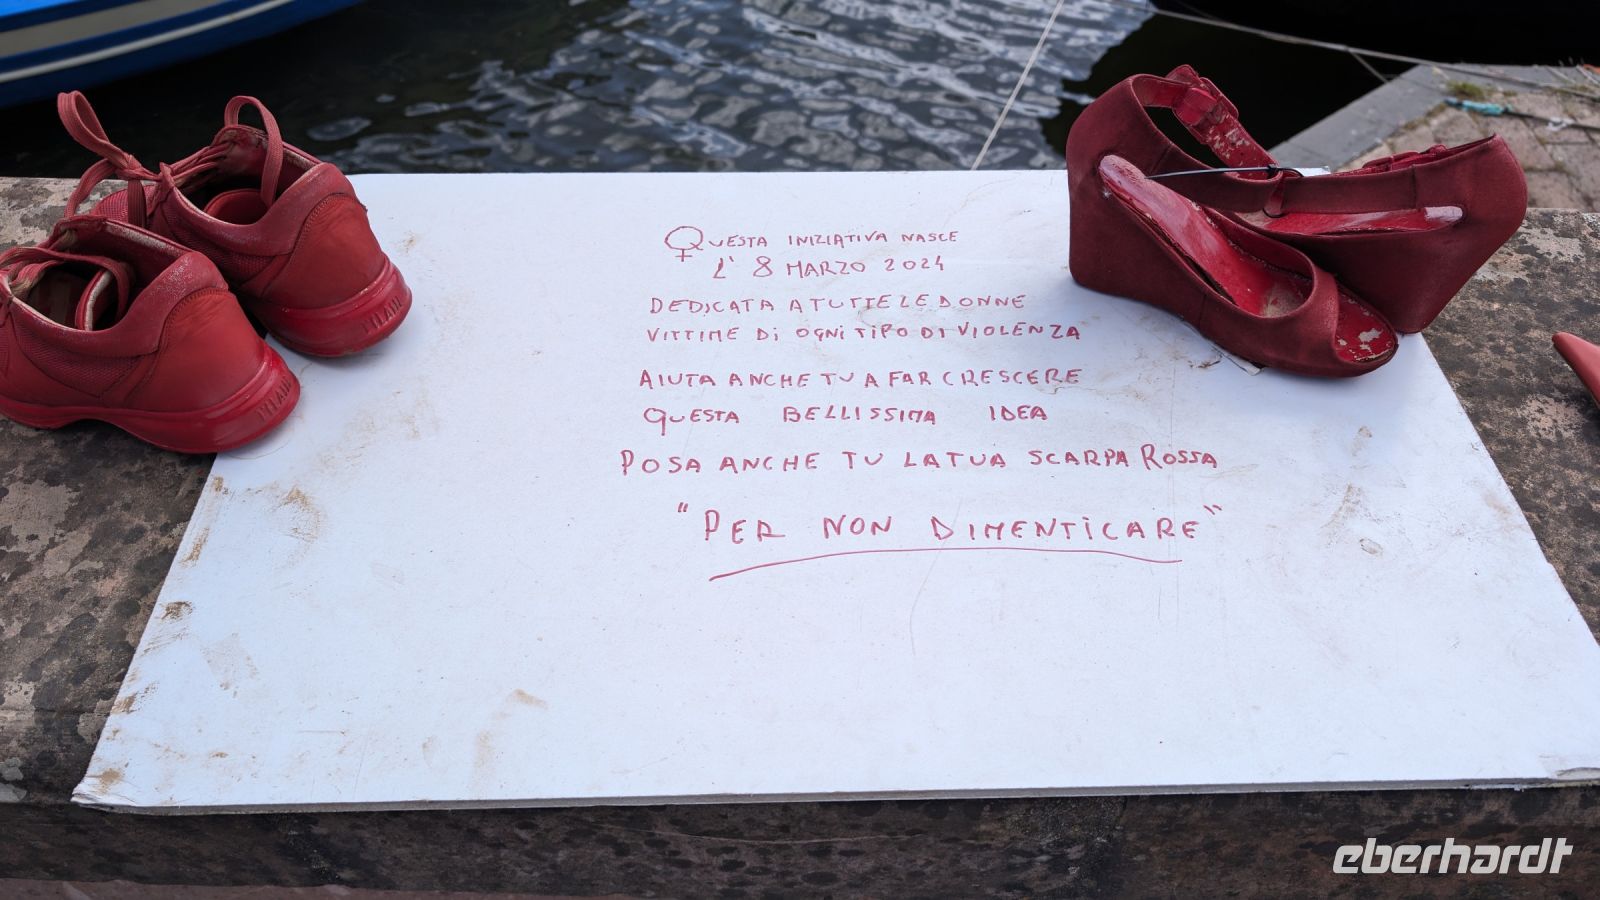 QUESTA INIZIATIVA NASCE
L' 8 MARZO 2024
DEDICATA A TUTTE LE DONNE
VITTIME DI OGNI TIPO DI VIOLENZA
AIUTA ANCHE TU A FAR CRESCERE
QUESTA BELLISSIMA IDEA
POSA ANCHE TU LA TUA SCARPA ROSSA
"PER NON DIMENTICARE"
eberhardt